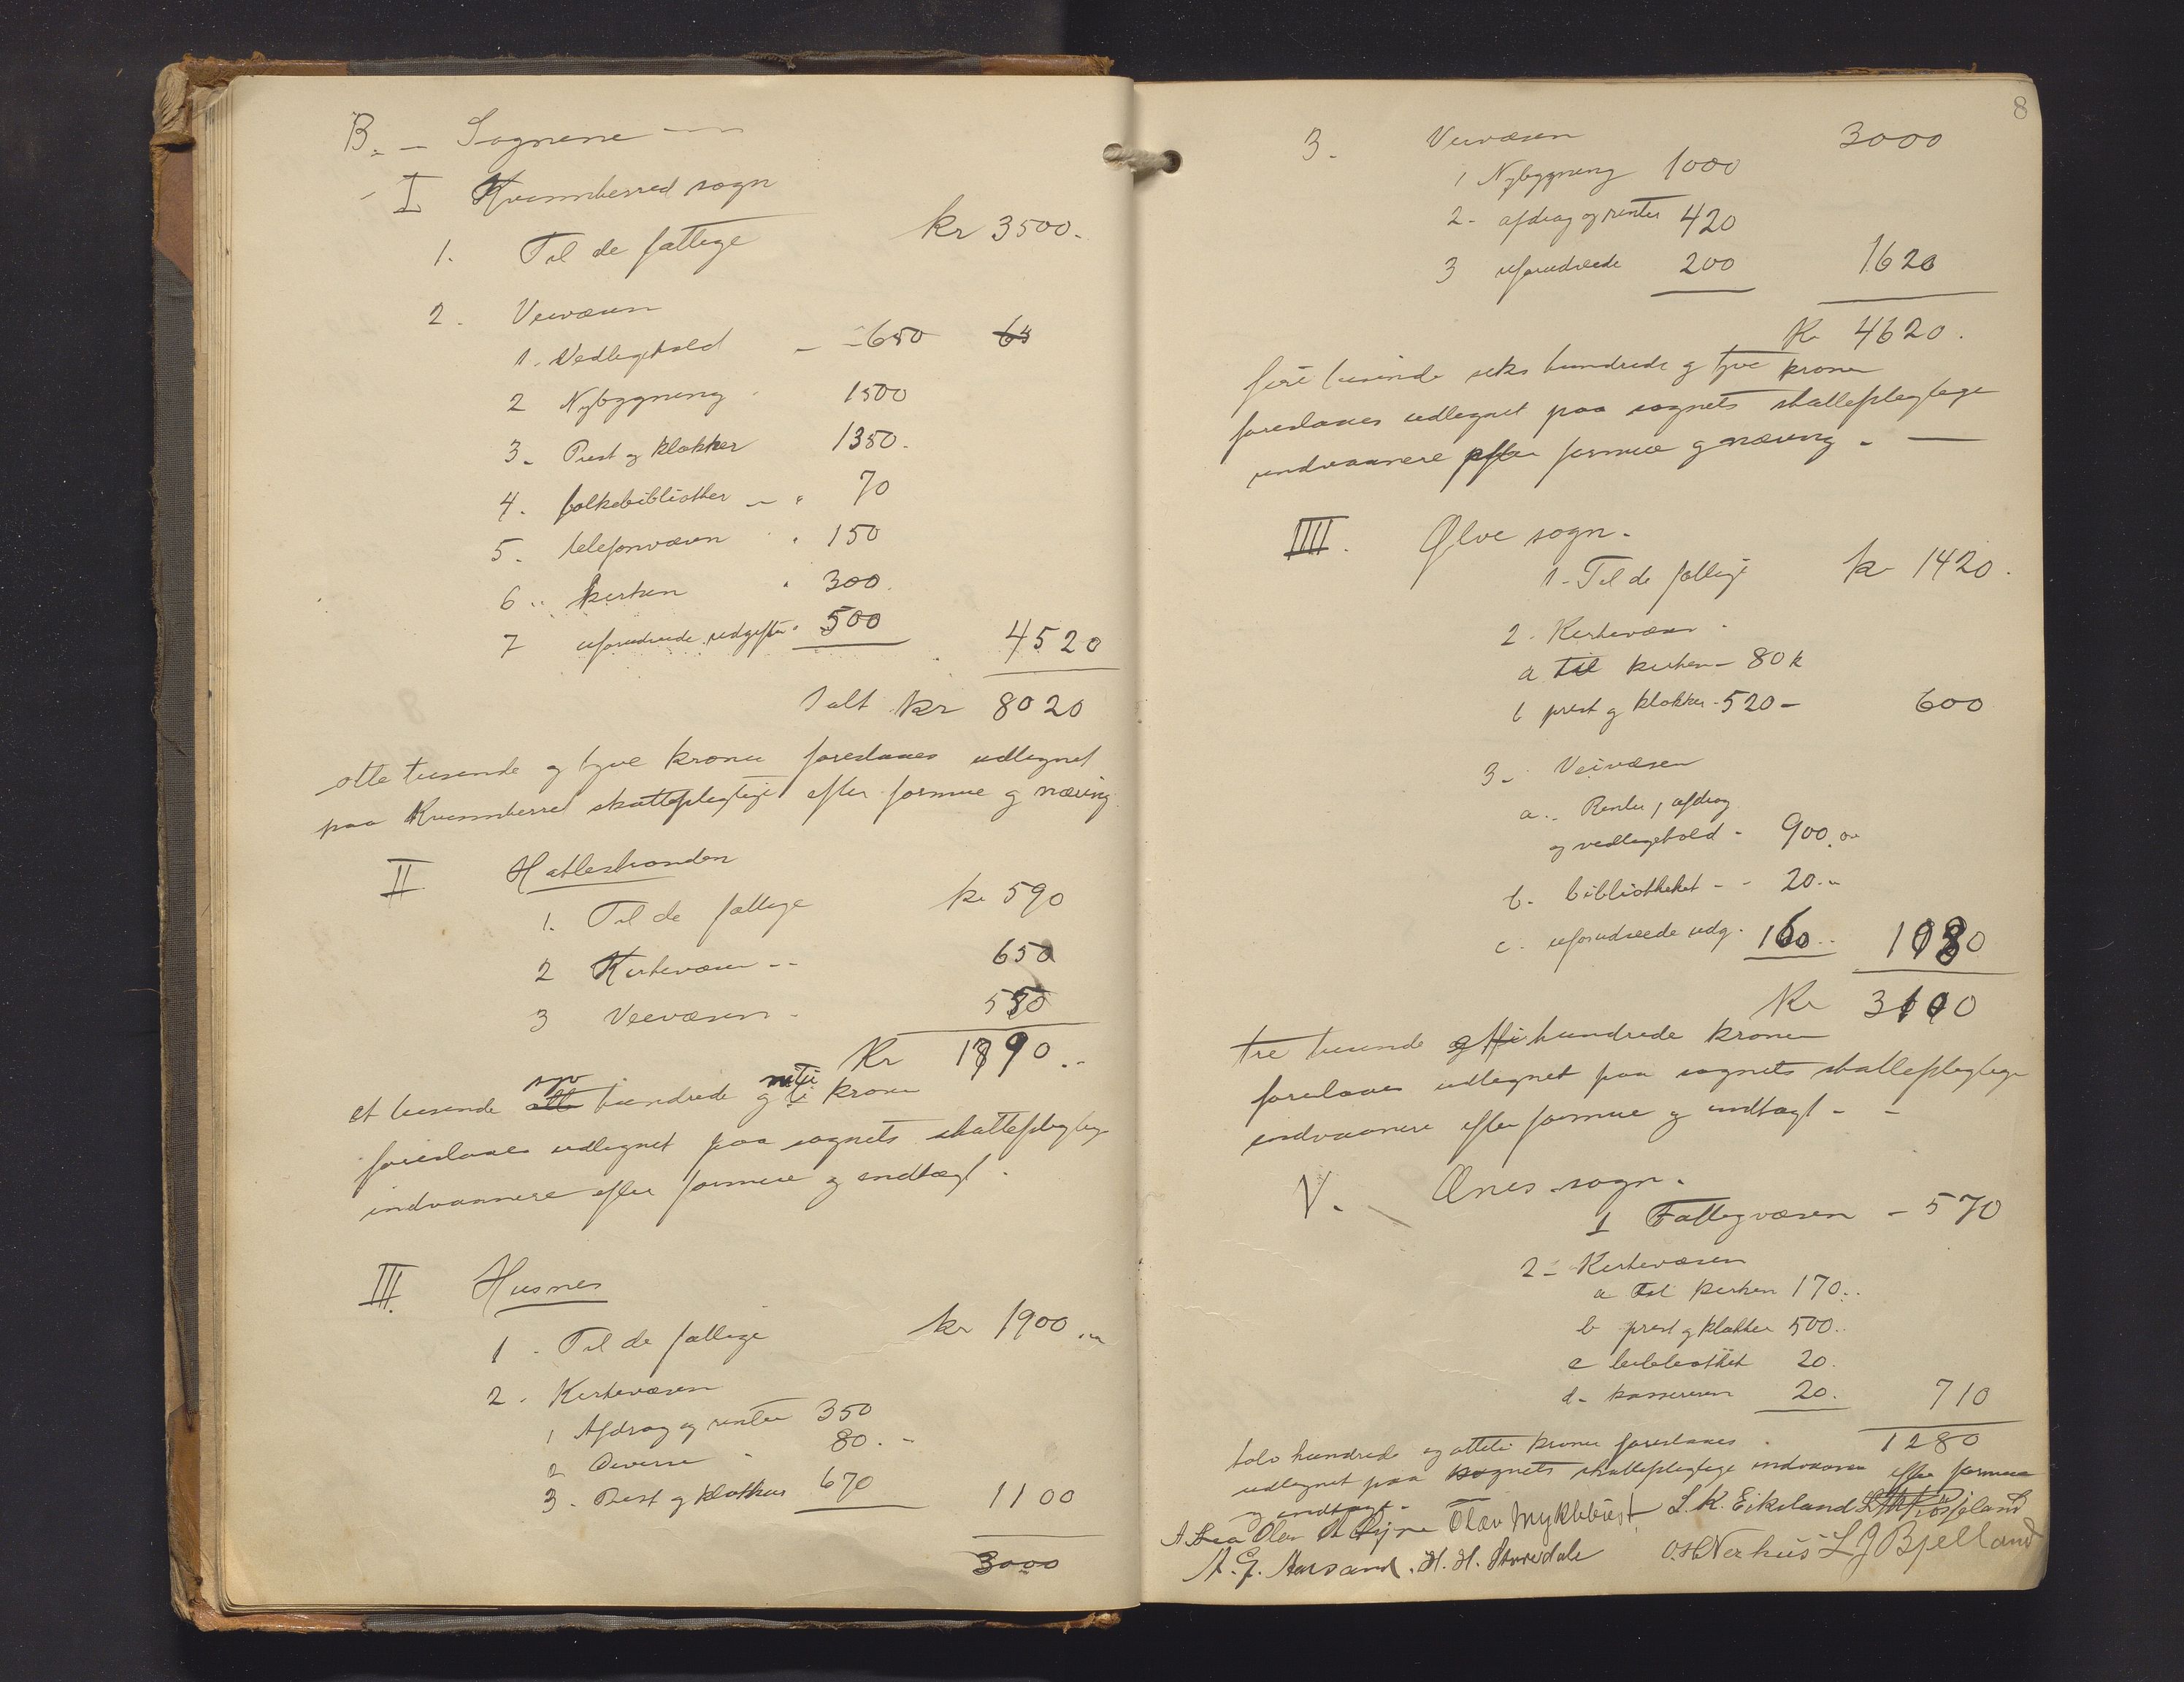 B. — Sognene —
I Kvinnherred sogn
1. Til de fattige kr 3500.
2. Veivæsen
1. Vedligehold — 650
2 Nybygning 1500
3. Prest og klokker 1350.
4. folkebibliothek — " 70
5. telefonvæsen " 150
6 " kirken " 300.
7 uforudseede udgifter " 500 4520
Ialt kr 8020
otte tusende og tyve kroner foreslaaes udlignet
paa Kvinnherred skattepligtige efter formue og næring.
II Hatlestranden
1. Til de fattige kr 590
2 Kirkevæsen -- 650
3 Veivæsen - 550
Kr 1790..
syv nitti
et tusende otte hundrede og ti kroner
foreslaaes udlignet paa sognets skattepligtige
indvaanere efter formue og indtægt.
III Husnes
1. Til de fattige kr 1900
2. Kirkevæsen
1 Afdrag og renter 350
2 Diverse 80. -
3. Prest og klokker 670 1100
3000
8
3. Veivæsen 3000
1 Nybygning 1000
2- afdrag og renter 420
3 uforudseede 200 1620
Kr 4620.
fire tusinde seks hundrede og tyve kroner
foreslaaes udlignet paa sognets skattepligtige
indvaanere efter formue og næring. —
IIII. Ølve sogn.
1. Til de fattige kr 1420.
2. Kirkevæsen.
a til kirken — 80 k
b prest og klokker - 520 — 600
3. Veivæsen
a.. Renter, afdrag
og vedligehold - 900.00
b. bibliotheket - - 20.
c. uforudseede udg. 160.. 1080
Kr 3100
tre tusinde og et hundrede kroner
foreslaaes udlignet paa sognets skattepligtige
indvaanere efter formue og indtægt - -
V. Ænes sogn.
1 Fattigvæsen - 570
2 - Kirkevæsen
a Til kirken 170..
b prest og klokker 500..
c bibliothek 20.
d. kassereren 20. 710
1280
tolv hundrede og otteti kroner foreslaaes
udlignet paa sognets skattepligtige indvaanere efter formue
og indtægt.
Olav Myklebust L. K. Eikeland
A. G. Aarsand. H. H. Storedale O. H. Nerhus L J Bjelland